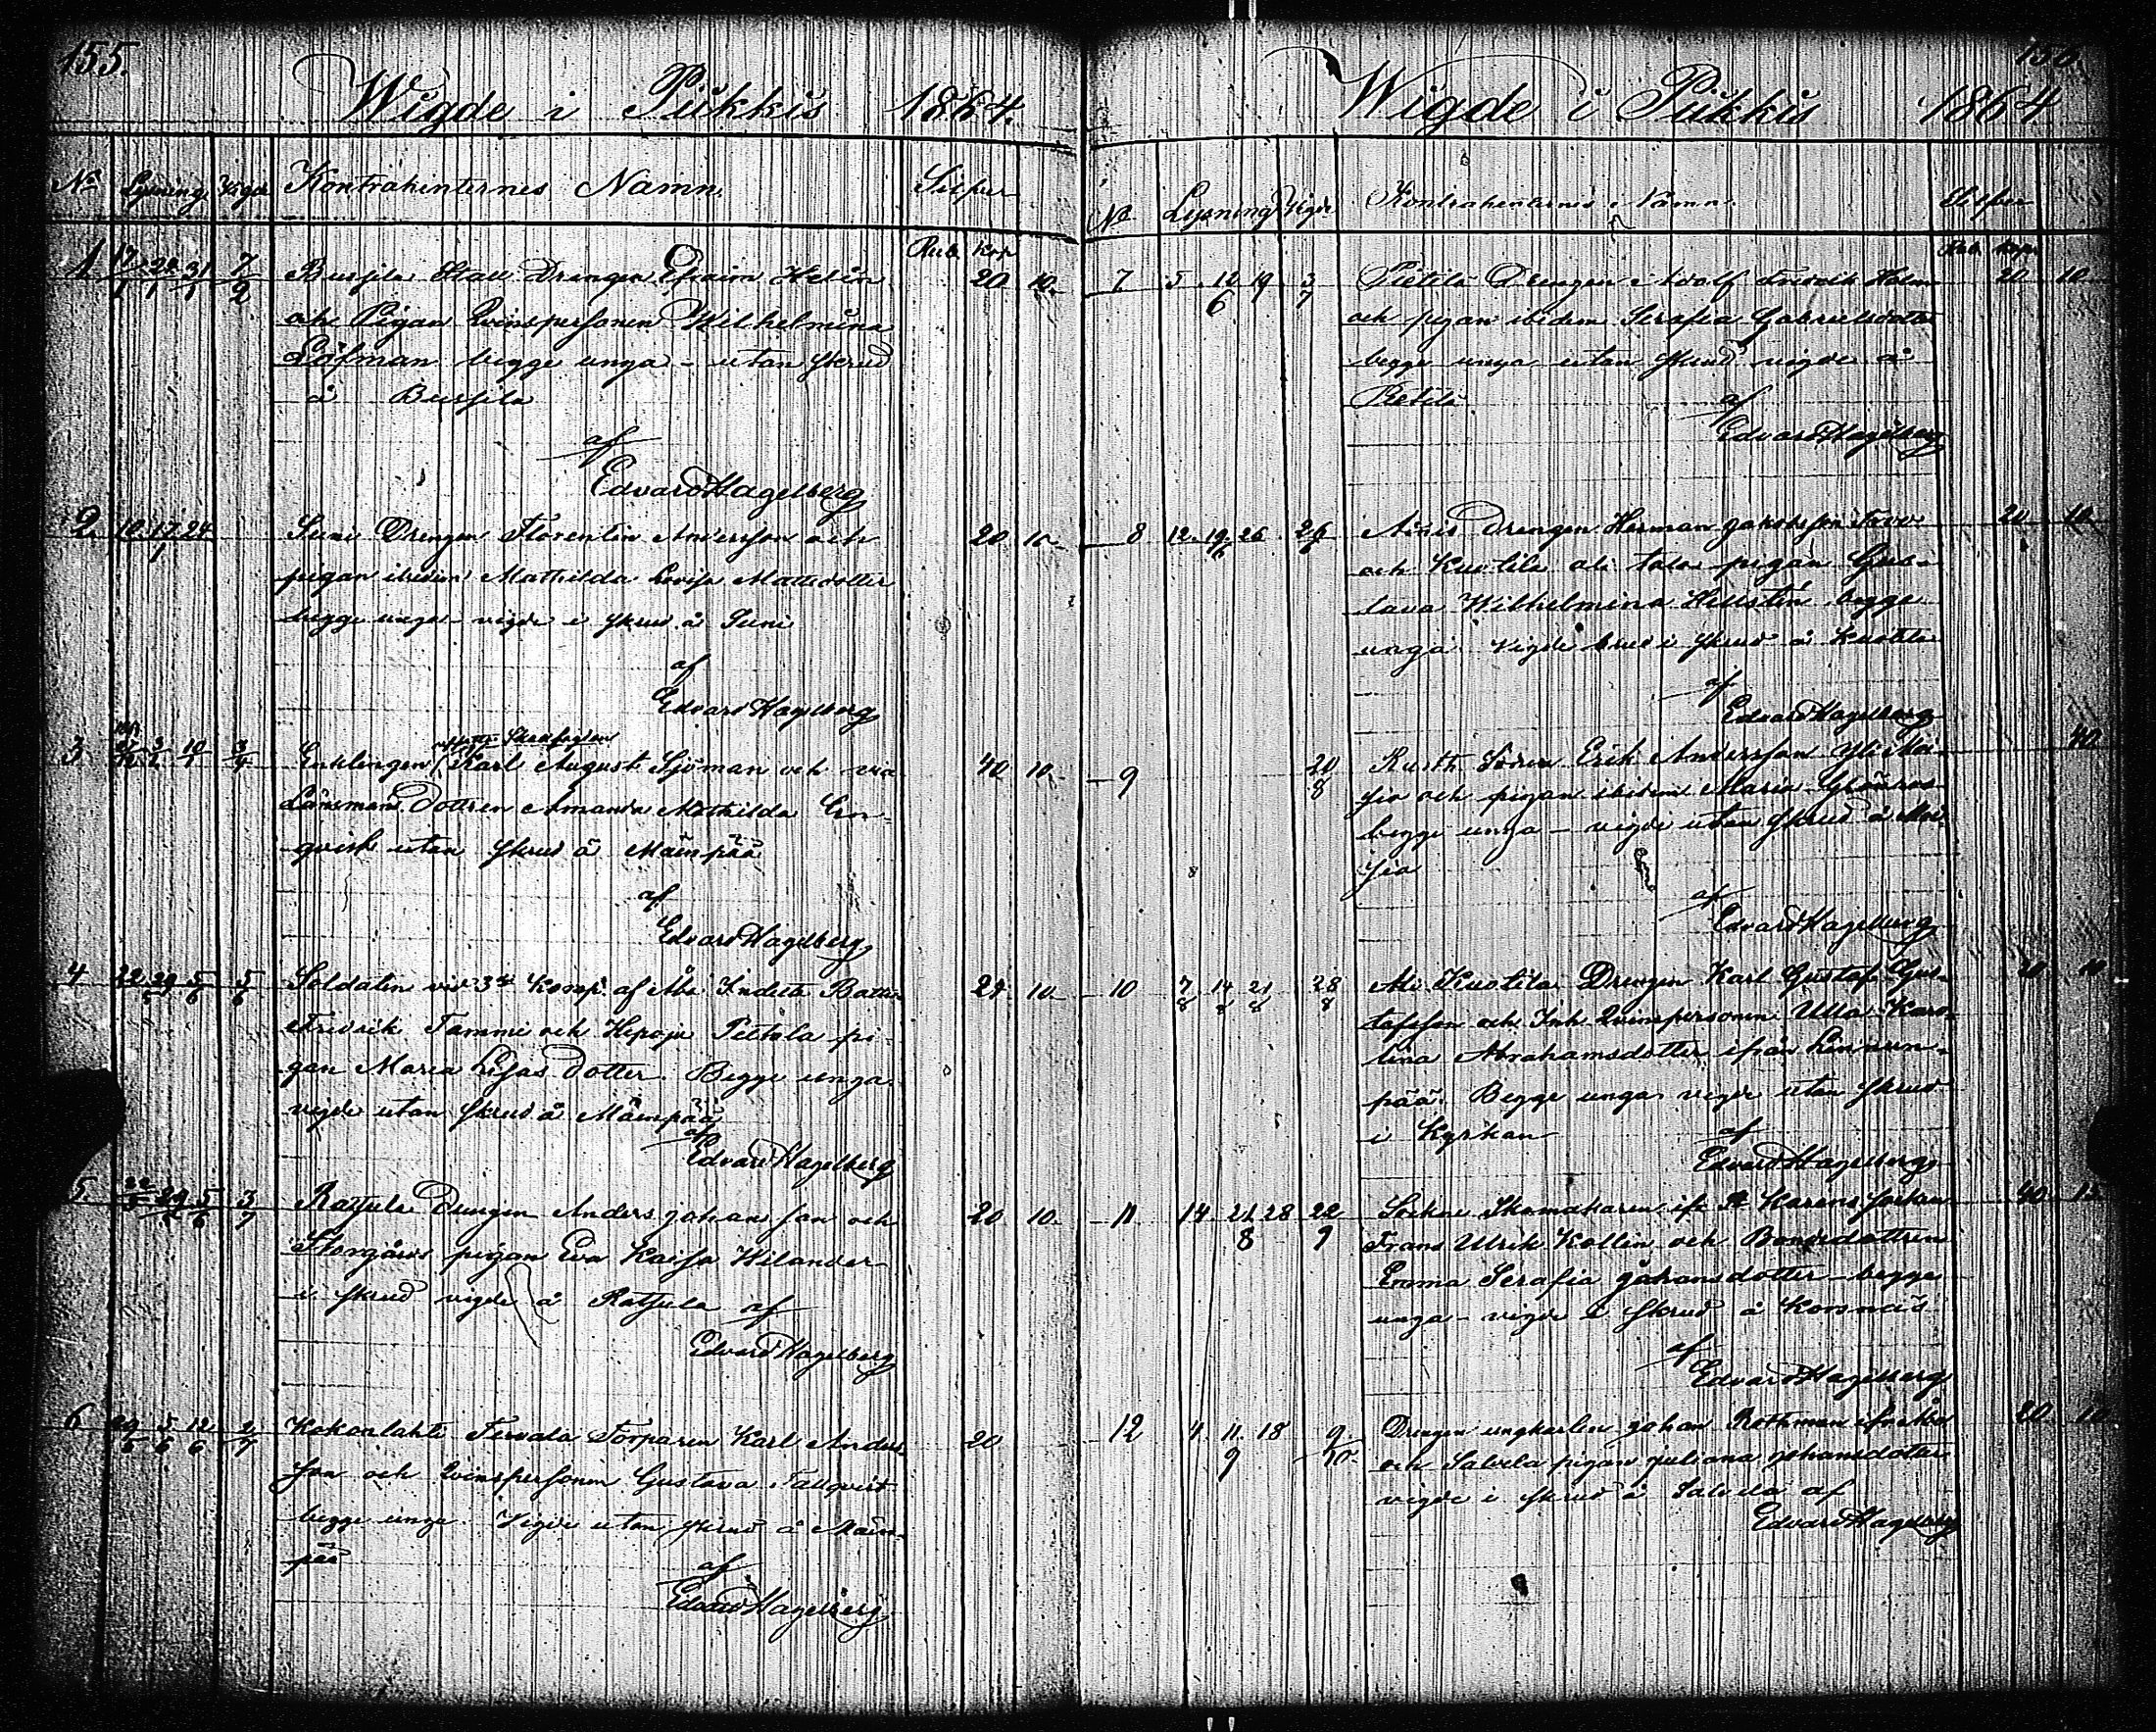 155.
Wigde i Piikkis 1864.
No Lysning Vigde Kontrahenternes Namn. Silfver
Rub. Kop
1 17/1 24/1 31/1 7/2 Bussila Stall Drengen Efraim Helin 20 10.
och Pigan Qvinspersonen Wilhelmina
Löfman begge unga - utan skrud
å Bussila
af
Edvard Hagelberg
2. 10. 17. 24 1 Suni Drengen Florentin Andersson och 20 10.
pigan ibidem Mathilda Lovisa Mattsdotter
begge unga - vigde i skrud å Suni
af
Edvard Hagelberg
3 3/1 10/1 3/4 Enklingen Karl August Sjöman och 40 10.
Länsmans Dottren Amanda Mathilda
qvist utan skrud å Mäenpää
af
Edvard Hagelberg
4 22. 29/5 5/6 5/6 Soldaten vid 3de Komp. af Åbo Indelta Batt. 29 10
Fredrik Tammi och Hepojo Pietola pi-
gan Maria Lisas Dotter. Begge unga
vigde utan skrud å Mäenpää
af
Edvard Hagelberg
5. 22/5 29/5 5/6 3/7 Ratsula Drengen Anders Johansson och 20 10.
Storgårds pigan Eva Kaisa Wilander
i skrud vigde å Ratsula af
Edvard Hagelberg
6 29/5 5/6 12/6 2/7 Kokonlahti Tervala Torparen Karl Anders- 20
son och Qvinspersonen Gustava Tallqvist
begge unga. Vigde utan skrud å Mäen-
pää
af
Edvard Hagelberg
156.
Wigde i Piikkis 1864
No Lysning Vigde Kontrahenternes Namn. Silfver
Rub. Kop.
7 5. 12 19 6 3/7 Pietilä Drengen Adolf Fredrik Holm 20 10
och pigan ibidem Serafia Gabrielsdotter
begge unga utan skrud vigde å
Pietilä
af
Edvard Hagelberg
8 12. 19. 26 6 26/6 Drengen Herman Jakobsson 20 10
och Kuotila pigan Gus-
tava Wilhelmina Hellstén. begge
unga. Vigde brud i skrud å Kuotila
af
Edvard Hagelberg
9 20/8 Rusth. Sonen Erik Andersson Yli Moi- 40
sio och pigan ibidem Maria Grönroos
begge unga - vigde utan skrud å Moi-
sio
af
Edvard Hagelberg
10 7/8 14/8 21/8 28/8 Ali Kuotila Drengen Karl Gustaf Gus- 20 10
tafsson och Inh. Qvinspersonen Ulla Karo-
lina Abrahamsdotter ifrån Linnun-
pää. Begge unga vigde utan skrud
i Kyrkan
af
Edvard Hagelberg
11 14 21 28 8 22/9 Skomakaren ifr. St Karins socken 40 15
Frans Ulrik Kollin och Bondedottren
Emma Serafia Johansdotter - begge
unga - vigde i skrud å Korsnäs
af
Edvard Hagelberg
12 4. 11. 18 9 9/10 Drengen ungkarlen Johan Rothman ifrån Åbo 20 10
och Salvela pigan Juliana Johansdotter
vigde i skrud å Salvela af
Edvard Hagelberg